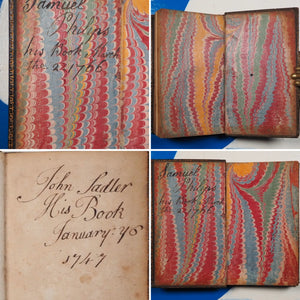 Samuel
Philips
his Book
the 2 1766
John Sadler
His Book
January: ye 6
1747
Samuel
Philips
his Book
the 2 1766